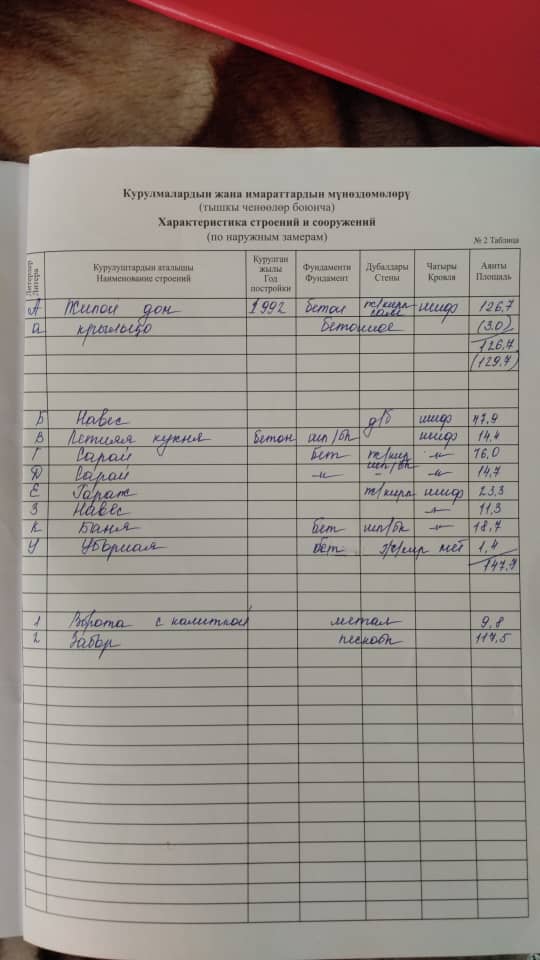 Курулмалардын жана имараттардын мүнөздөмөлөрү
(тышкы ченөөлөр боюнча)
Характеристика строений и сооружений
(по наружным замерам)
№ 2 Таблица
Литерлер Литера Курулуштардын аталышы Наименование строений Курулган жылы Год постройки Фундаменти Фундамент Дубалдары Стены Чатыры Кровля Аянты Площадь
А Жилой дом 1992 бетон ж/кирп шиф 126,7
а крыльцо бетонное (3.0)
126,7
(129,7)
Б Навес д/б шиф 47,9
В Летняя кухня бетон шл/бл шиф 14,4
Г Сарай бет ж/кир -"- 16,0
Д Сарай -"- шл/бл -"- 14,7
Е Гараж ж/кирп шиф 23,3
З Навес -"- 11,3
К Баня бет шл/бл -"- 18,7
У Уборная бет ж/кир мет 1,4
147,7
1 Ворота с калиткой метал 9,8
2 Забор пескобл 117,5